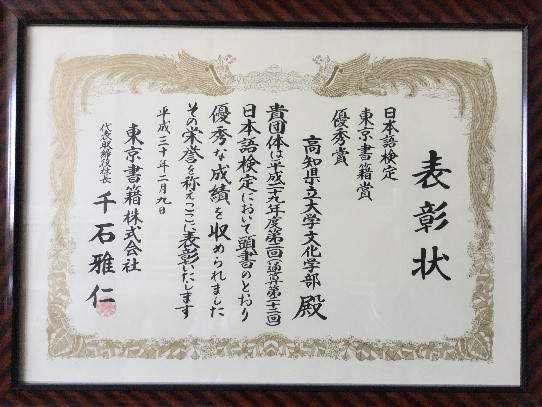 表彰状
日本語検定
東京書籍賞
優秀賞
高知県立大学文化学部 殿
貴団体は平成二九年度第二回(通算第二十二回)
日本語検定において頭書のとおり
優秀な成績を収められました
その栄誉を称えここに表彰いたします
平成三十年二月九日
東京書籍株式会社
代表取締役社長 千石雅仁